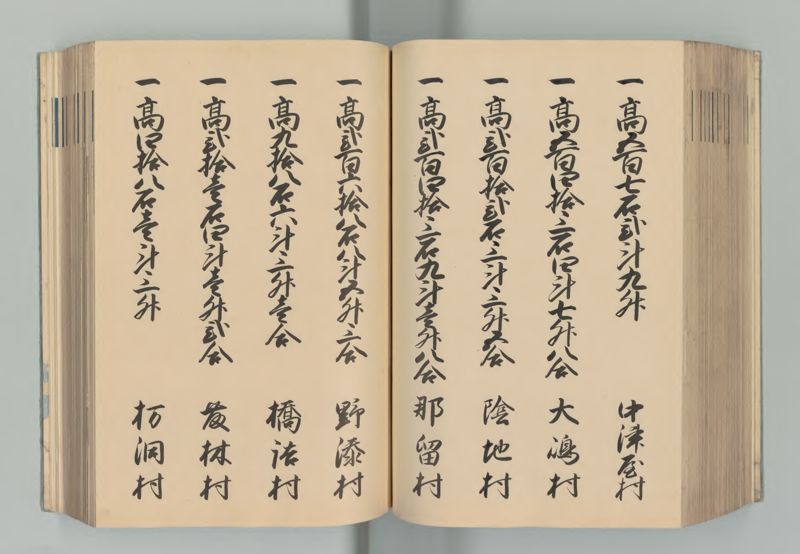 一高五百七石弐斗九升 中津屋村
一高五百四拾三石四斗七升八合 大嶋村
一高弐百拾弐石三斗三升五合 陰地村
一高弐百四拾三石九斗壱升八合 那留村
一高弐百六拾八石八斗五升三合 野添村
一高九拾八石六斗三升壱合 橋詰村
一高弐拾壱石四斗壱升弐合 藪林村
一高四拾八石壱斗三升 杤洞村